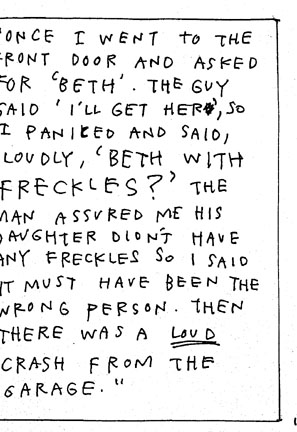 "ONCE I WENT TO THE
FRONT DOOR AND ASKED
FOR 'BETH'. THE GUY
SAID 'I'LL GET HER', SO
I PANICED AND SAID,
LOUDLY, 'BETH WITH
FRECKLES?' THE
MAN ASSURED ME HIS
DAUGHTER DIDN'T HAVE
ANY FRECKLES SO I SAID
IT MUST HAVE BEEN THE
WRONG PERSON. THEN
THERE WAS A LOUD
CRASH FROM THE
GARAGE."